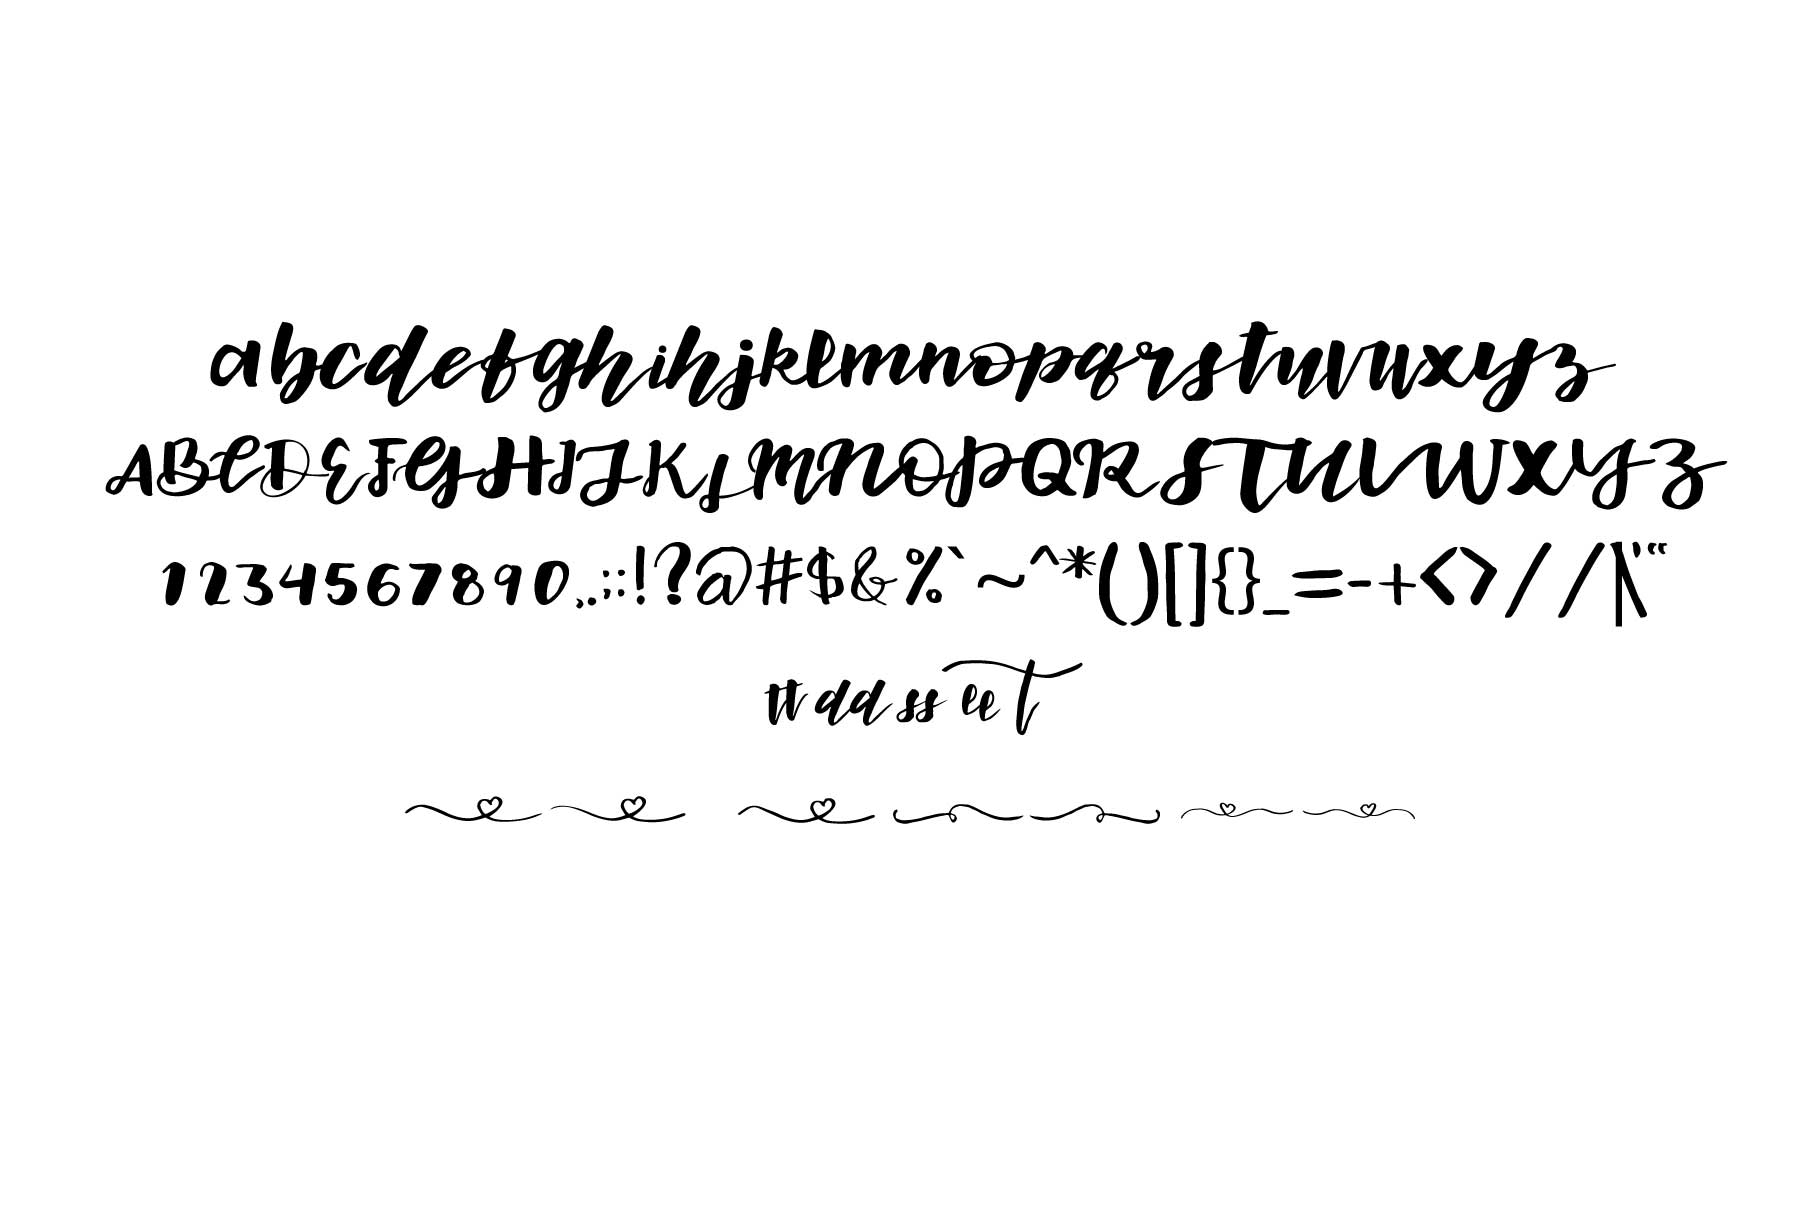 abcdefghihjklmnopqrstuvwxyz
ABCDEFGHIJKLMNOPQRSTUVWXYZ
1234567890,.;:!?@#$&%`~^*()[]{}_=-+<>//|\'“
ttddssllT